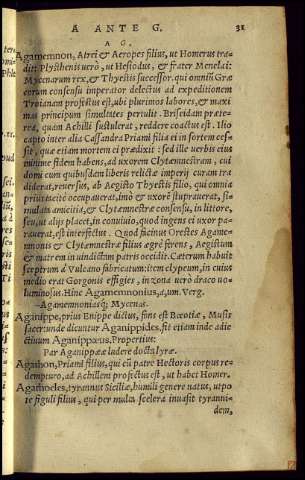 A ANTE G. 31
A G.
Agamemnon, Atrei & Aeropes filius, ut Homerus tra-
dit: Plysthenis uerò, ut Hesiodus, & frater Menelai:
Mycenarum rex, & Thyestis successor. qui omniũ Græ
corum consensu imperator delectus ad expeditionem
Troianam profectus est, ubi plurimos labores, & maxi
mas principum simultates pertulit. Briseidam præte-
reà, quam Achilli sustulerat, reddere coactus est. Ilio
capto inter alia Cassandra Priami filia ei in sortem ces-
sit, quæ etiam mortem ei prædixit: sed ille uerbis eius
minime fidem habens, ad uxorem Clytæmnestram, cui
domi cum quibusdam liberis relictæ imperij curam tra
diderat, reuersus, ab Aegisto Thyestis filio, qui omnia
prius uisciè occupauerat, imò & uxorẽ stuprauerat, si-
mulata amicitia, & Clytæmnestræ consensu, in littore,
seu, ut alijs placet, in conuiuio, quod ingens ei uxor pa-
rauerat, est interfectus. Quod facinus Orestes Agame-
mnonis & Clytæmnestræ filius ægrè ferens, Aegistum
& matrem in uindictam patris occidit. Cæterum habuit
sceptrum à Vulcano fabricatum: item clypeum, in cuius
medio erat Gorgonis effigies, in zona uerò draco uo-
luminosus. Hinc Agamemnonius, a, um. Verg.
-Agamemnoniasq́; Mycenas.
Aganippe, prius Enippe dictus, fons est Bœotiæ, Musis
sacer: unde dicuntur Aganippides. fit etiam inde adie
ctiuum Aganippæus. Propertius:
Par Aganippææ ludere docta lyræ.
Agathon, Priami filius, qui cũ patre Hectoris corpus re-
dempturo, ad Achillem profectus est, ut habet Homer.
Agathocles, tyrannus Siciliæ, humili genere natus, utpo
te figuli filius, qui per multa scelera inuasit tyranni-
dem,